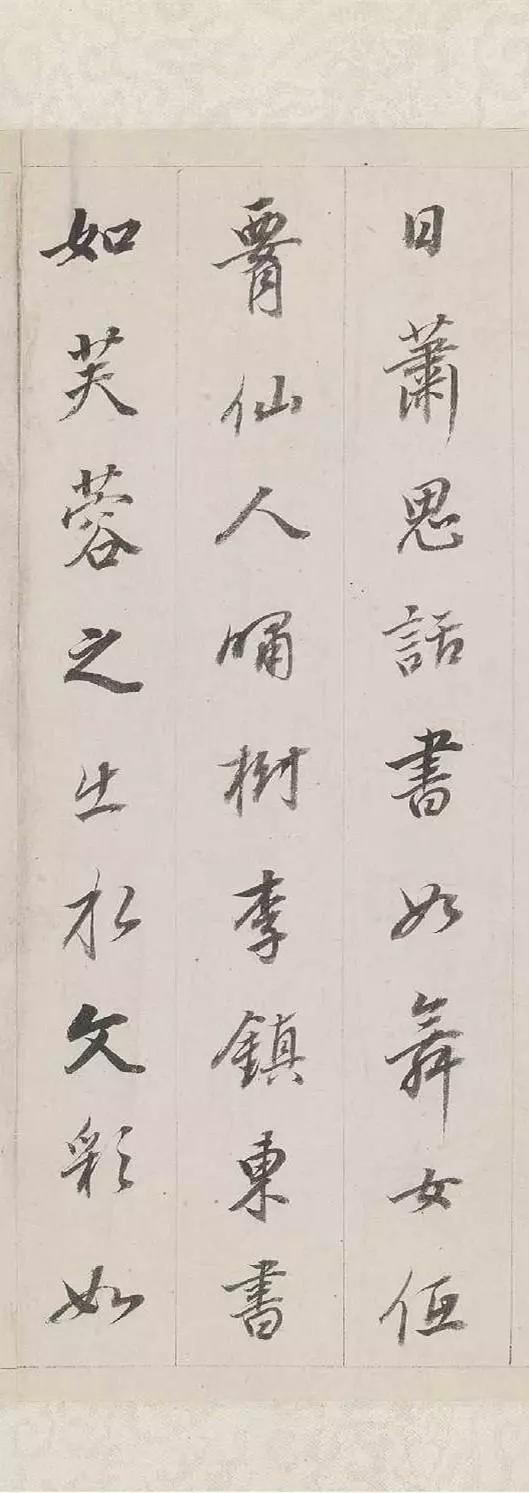 日蕭思話書如舞女低
腰仙人嘯樹李鎮東書
如芙蓉之出水文彩如